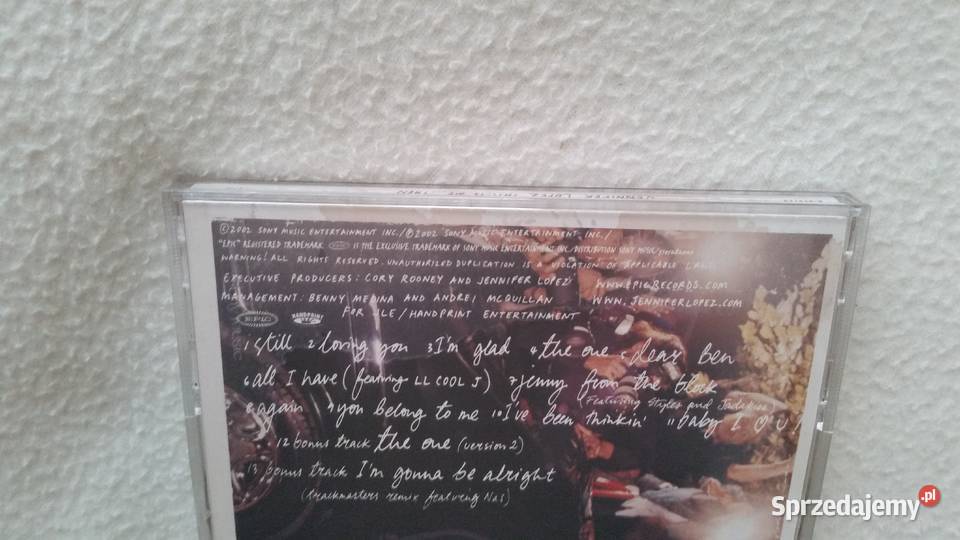 JENNIFER LOPEZ THIS IS ME...THEN
©2002 SONY MUSIC ENTERTAINMENT INC./℗2002 SONY MUSIC ENTERTAINMENT INC./
"EPIC" REGISTERED TRADEMARK IS THE EXCLUSIVE TRADEMARK OF SONY MUSIC ENTERTAINMENT INC./DISTRIBUTION SONY MUSIC/
WARNING: ALL RIGHTS RESERVED. UNAUTHORIZED DUPLICATION IS A VIOLATION OF APPLICABLE LAWS
EXECUTIVE PRODUCERS: CORY ROONEY AND JENNIFER LOPEZ WWW.EPICRECORDS.COM
MANAGEMENT: BENNY MEDINA AND ANDREI MCQUILLAN WWW.JENNIFERLOPEZ.COM
FOR HANDPRINT ENTERTAINMENT
EPIC HANDPRINT
1 still 2 loving you 3 I'm glad 4 the one 5 dear ben
6 all I have (featuring LL COOL J) 7 jenny from the block
Featuring Styles and Jadakiss
8 again 9 you belong to me 10 I've been thinkin' 11 baby I ♡ U!
12 bonus track the one (version 2)
13 bonus track I'm gonna be alright
(trackmasters remix featuring Nas)
Sprzedajemy.pl